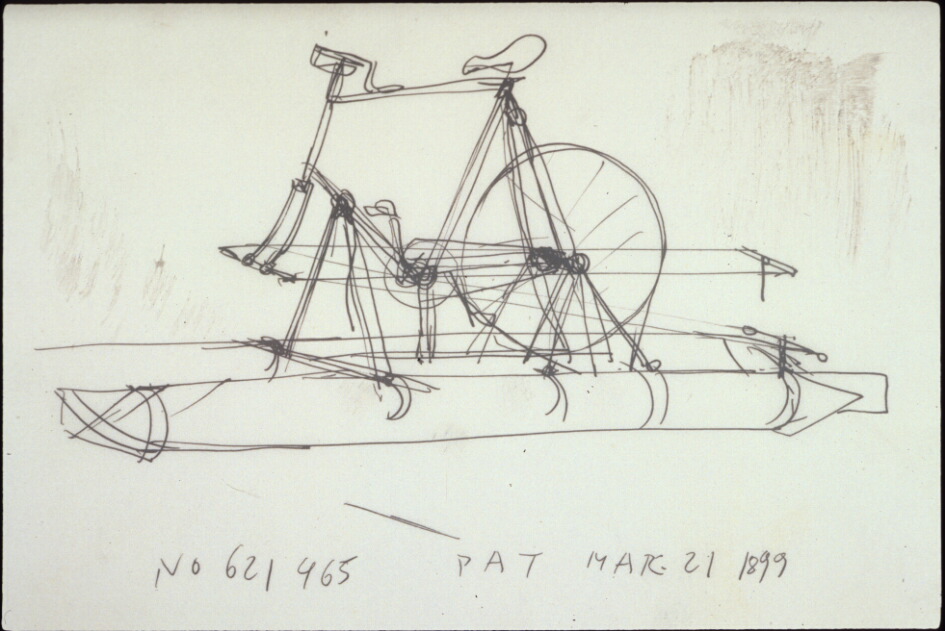 NO 621 465 PAT MAR 21 1899